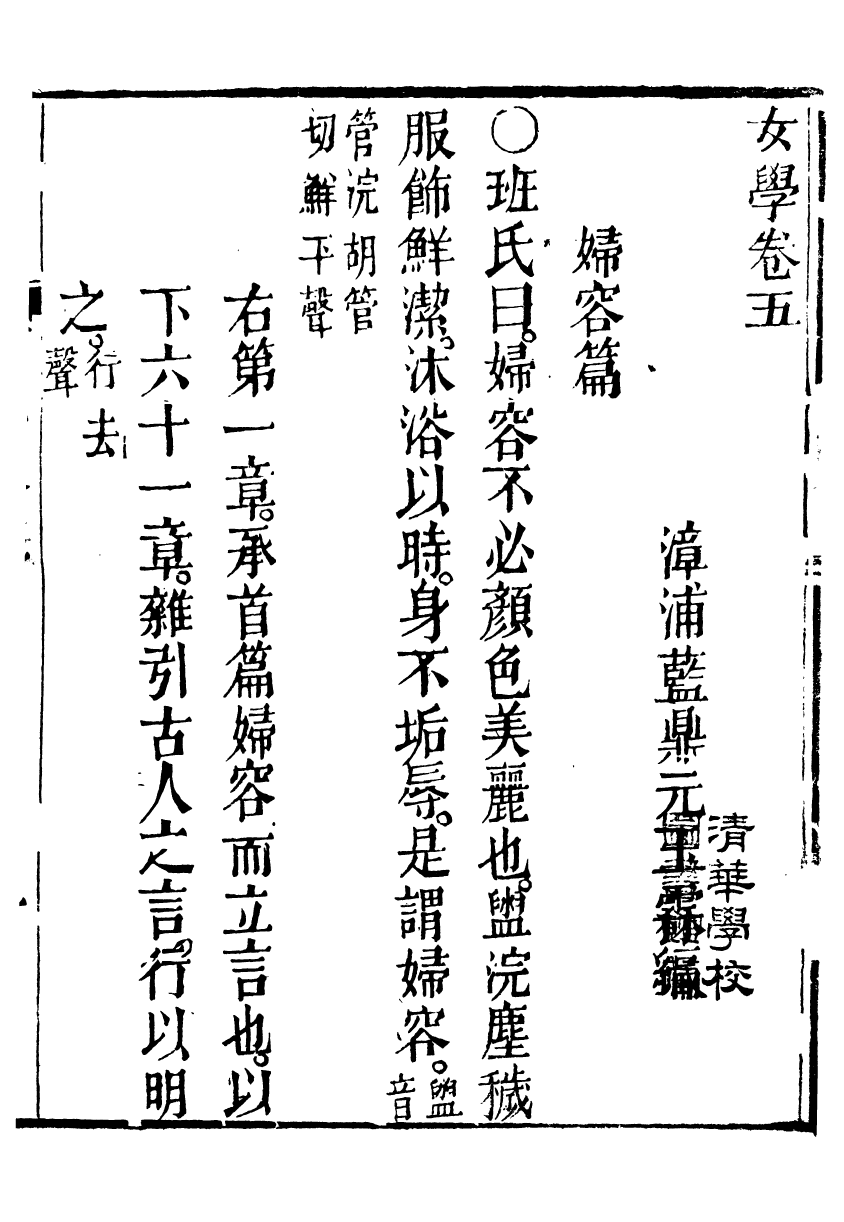 女學卷五
漳浦藍鼎元
清華學校
婦容篇
〇班氏曰。婦容不必顏色美麗也。盥浣塵穢
服飾鮮潔。沐浴以時。身不垢辱。是謂婦容。盥音
管浣胡管切鮮平聲
右第一章。承首篇婦容而立言也。以
下六十一章。雜引古人之言行以明
之。行去聲